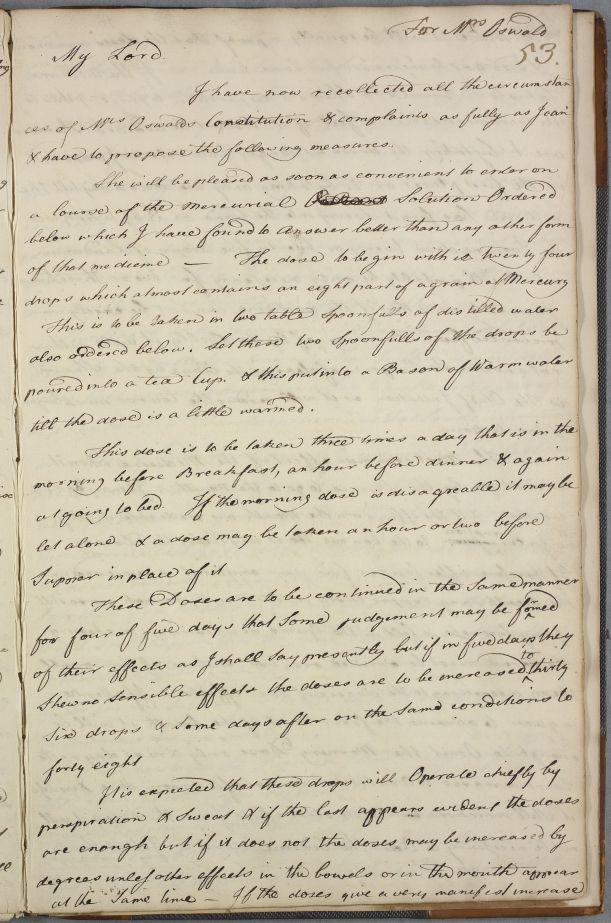 For Mrs Oswald
53.
My Lord
I have now recollected all the circumstan
ces of Mrs Oswalds Constitution & complaints as fully as I can
& have to propose the following measures.
She will be pleased as soon as convenient to enter on
a Course of the Mercurial Solution Ordered
below which I have found to answer better than any other form
of that medicine — The dose to begin with is twenty four
drops which almost contains an eight part of a grain of Mercury
This is to be taken in two table Spoonfulls of distilled water
also ordered below. Let these two Spoonfulls of the drops be
poured into a tea Cup. & this put into a Bason of Warm water
till the dose is a little warmed.
This dose is to be taken three times a day that is in the
morning before Breakfast, an hour before dinner & again
at going to bed. If the morning dose is disagreable it may be
let alone & a dose may be taken an hour or two before
Supper in place of it
These Doses are to be continued in the Same manner
for four of five days that Some judgement may be formed
of their effects as I shall Say presently but if in five days they
Shew no Sensible effects the doses are to be increased to thirty
Six drops & Some days after on the Same conditions to
forty eight
It is expected that these drops will Operate chiefly by
perspiration & Sweat & if the last appears evident the doses
are enough but if it does not the doses may be increased by
degrees unless other effects in the bowels or in the mouth appear
at the Same time — If the doses give a very manifest increase